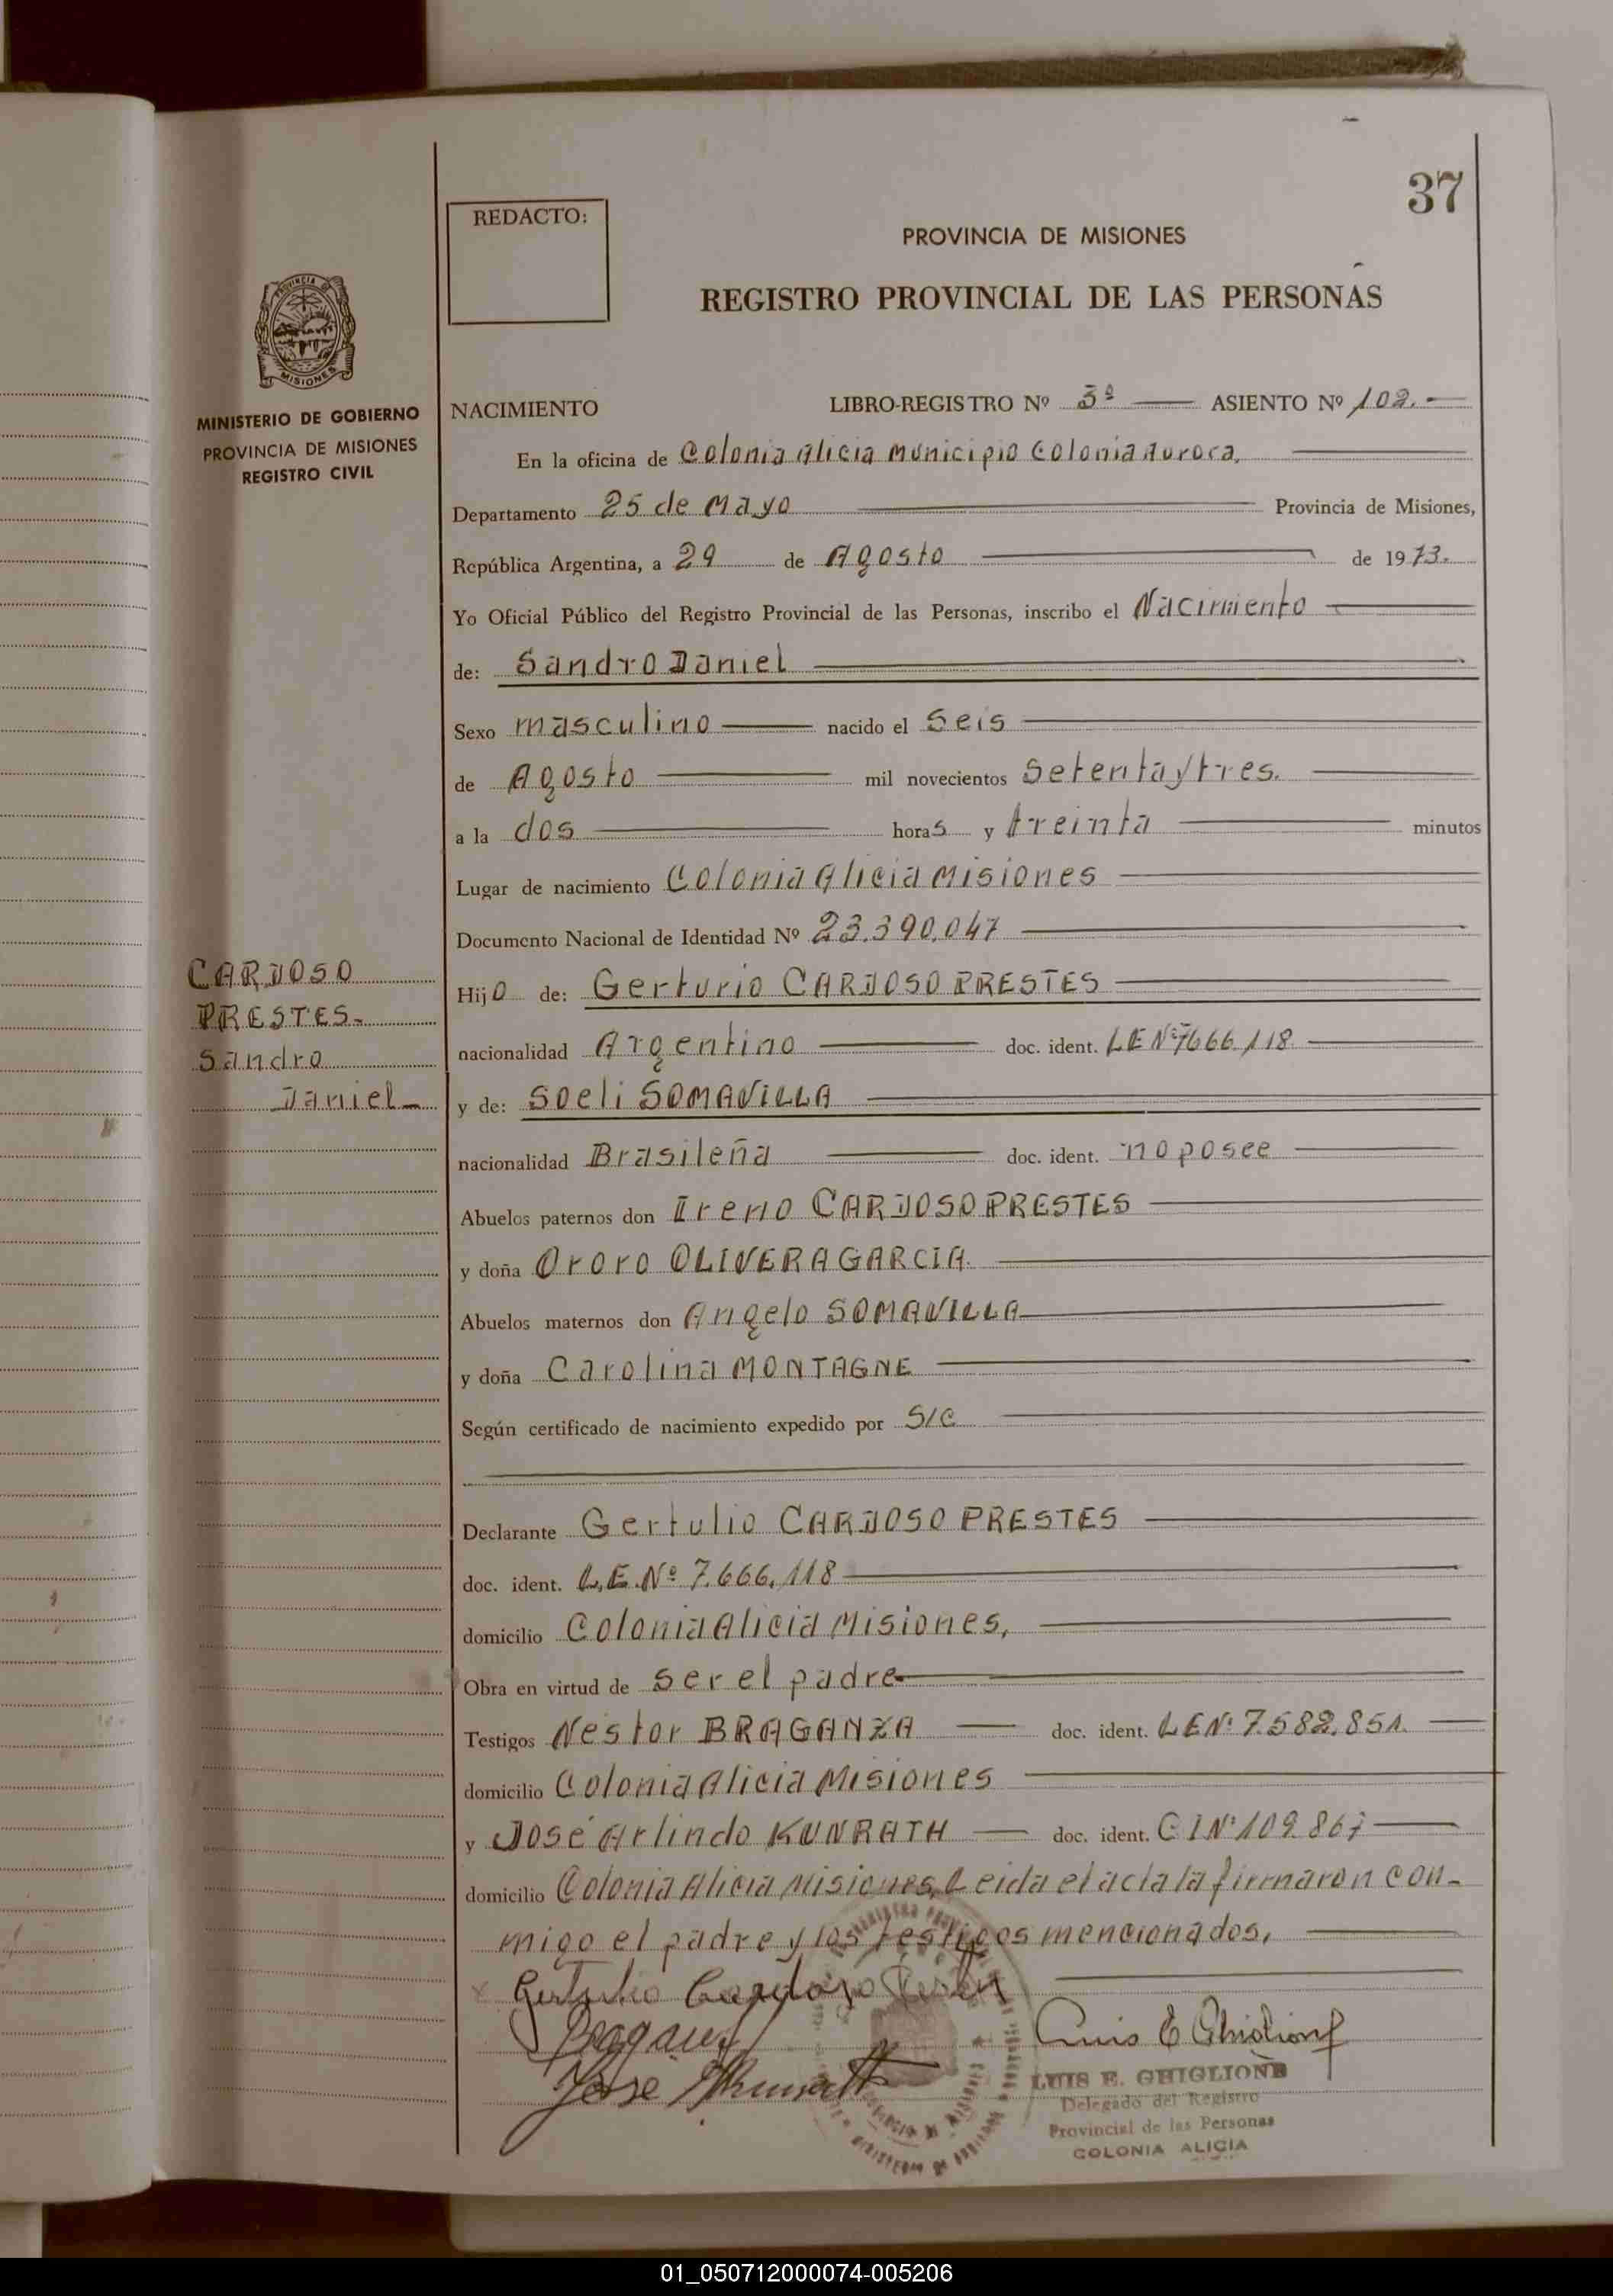 37
REDACTO:
PROVINCIA DE MISIONES
REGISTRO PROVINCIAL DE LAS PERSONAS
PROVINCIA DE
MISIONES
MINISTERIO DE GOBIERNO
PROVINCIA DE MISIONES
REGISTRO CIVIL
NACIMIENTO LIBRO-REGISTRO Nº 3º ASIENTO Nº 102.-
En la oficina de Colonia Alicia Municipio Colonia Aurora,
Departamento 25 de Mayo Provincia de Misiones,
República Argentina, a 29 de Agosto de 1973.
Yo Oficial Público del Registro Provincial de las Personas, inscribo el Nacimiento
de: Sandro Daniel
Sexo masculino nacido el Seis
de Agosto mil novecientos Setenta y tres.
a la dos horas y treinta minutos
Lugar de nacimiento Colonia Alicia Misiones
Documento Nacional de Identidad Nº 23.390.047
CARDOSO
PRESTES-
Sandro
Daniel-
Hijo de: Gerturio CARDOSO PRESTES
nacionalidad Argentino doc. ident. LE Nº 7666.118
y de: Soeli SOMAVILLA
nacionalidad Brasileña doc. ident. no posee
Abuelos paternos don Ireno CARDOSO PRESTES
y doña Ororo OLIVERA GARCIA.
Abuelos maternos don Angelo SOMAVILLA
y doña Carolina MONTAGNE
Según certificado de nacimiento expedido por S/C
Declarante Gertulio CARDOSO PRESTES
doc. ident. L.E.Nº 7.666.118
domicilio Colonia Alicia Misiones,
Obra en virtud de ser el padre
Testigos Nestor BRAGANZA doc. ident. LE Nº 7.582.851.
domicilio Colonia Alicia Misiones
y José Arlindo KUNRATH doc. ident. C I Nº 109.867
domicilio Colonia Alicia Misiones, Leida el acta la firmaron con-
migo el padre y los testigos mencionados.
Luis E Ghiglione
LUIS E. GHIGLIONE
Delegado del Registro
Provincial de las Personas
COLONIA ALICIA
01_050712000074-005206